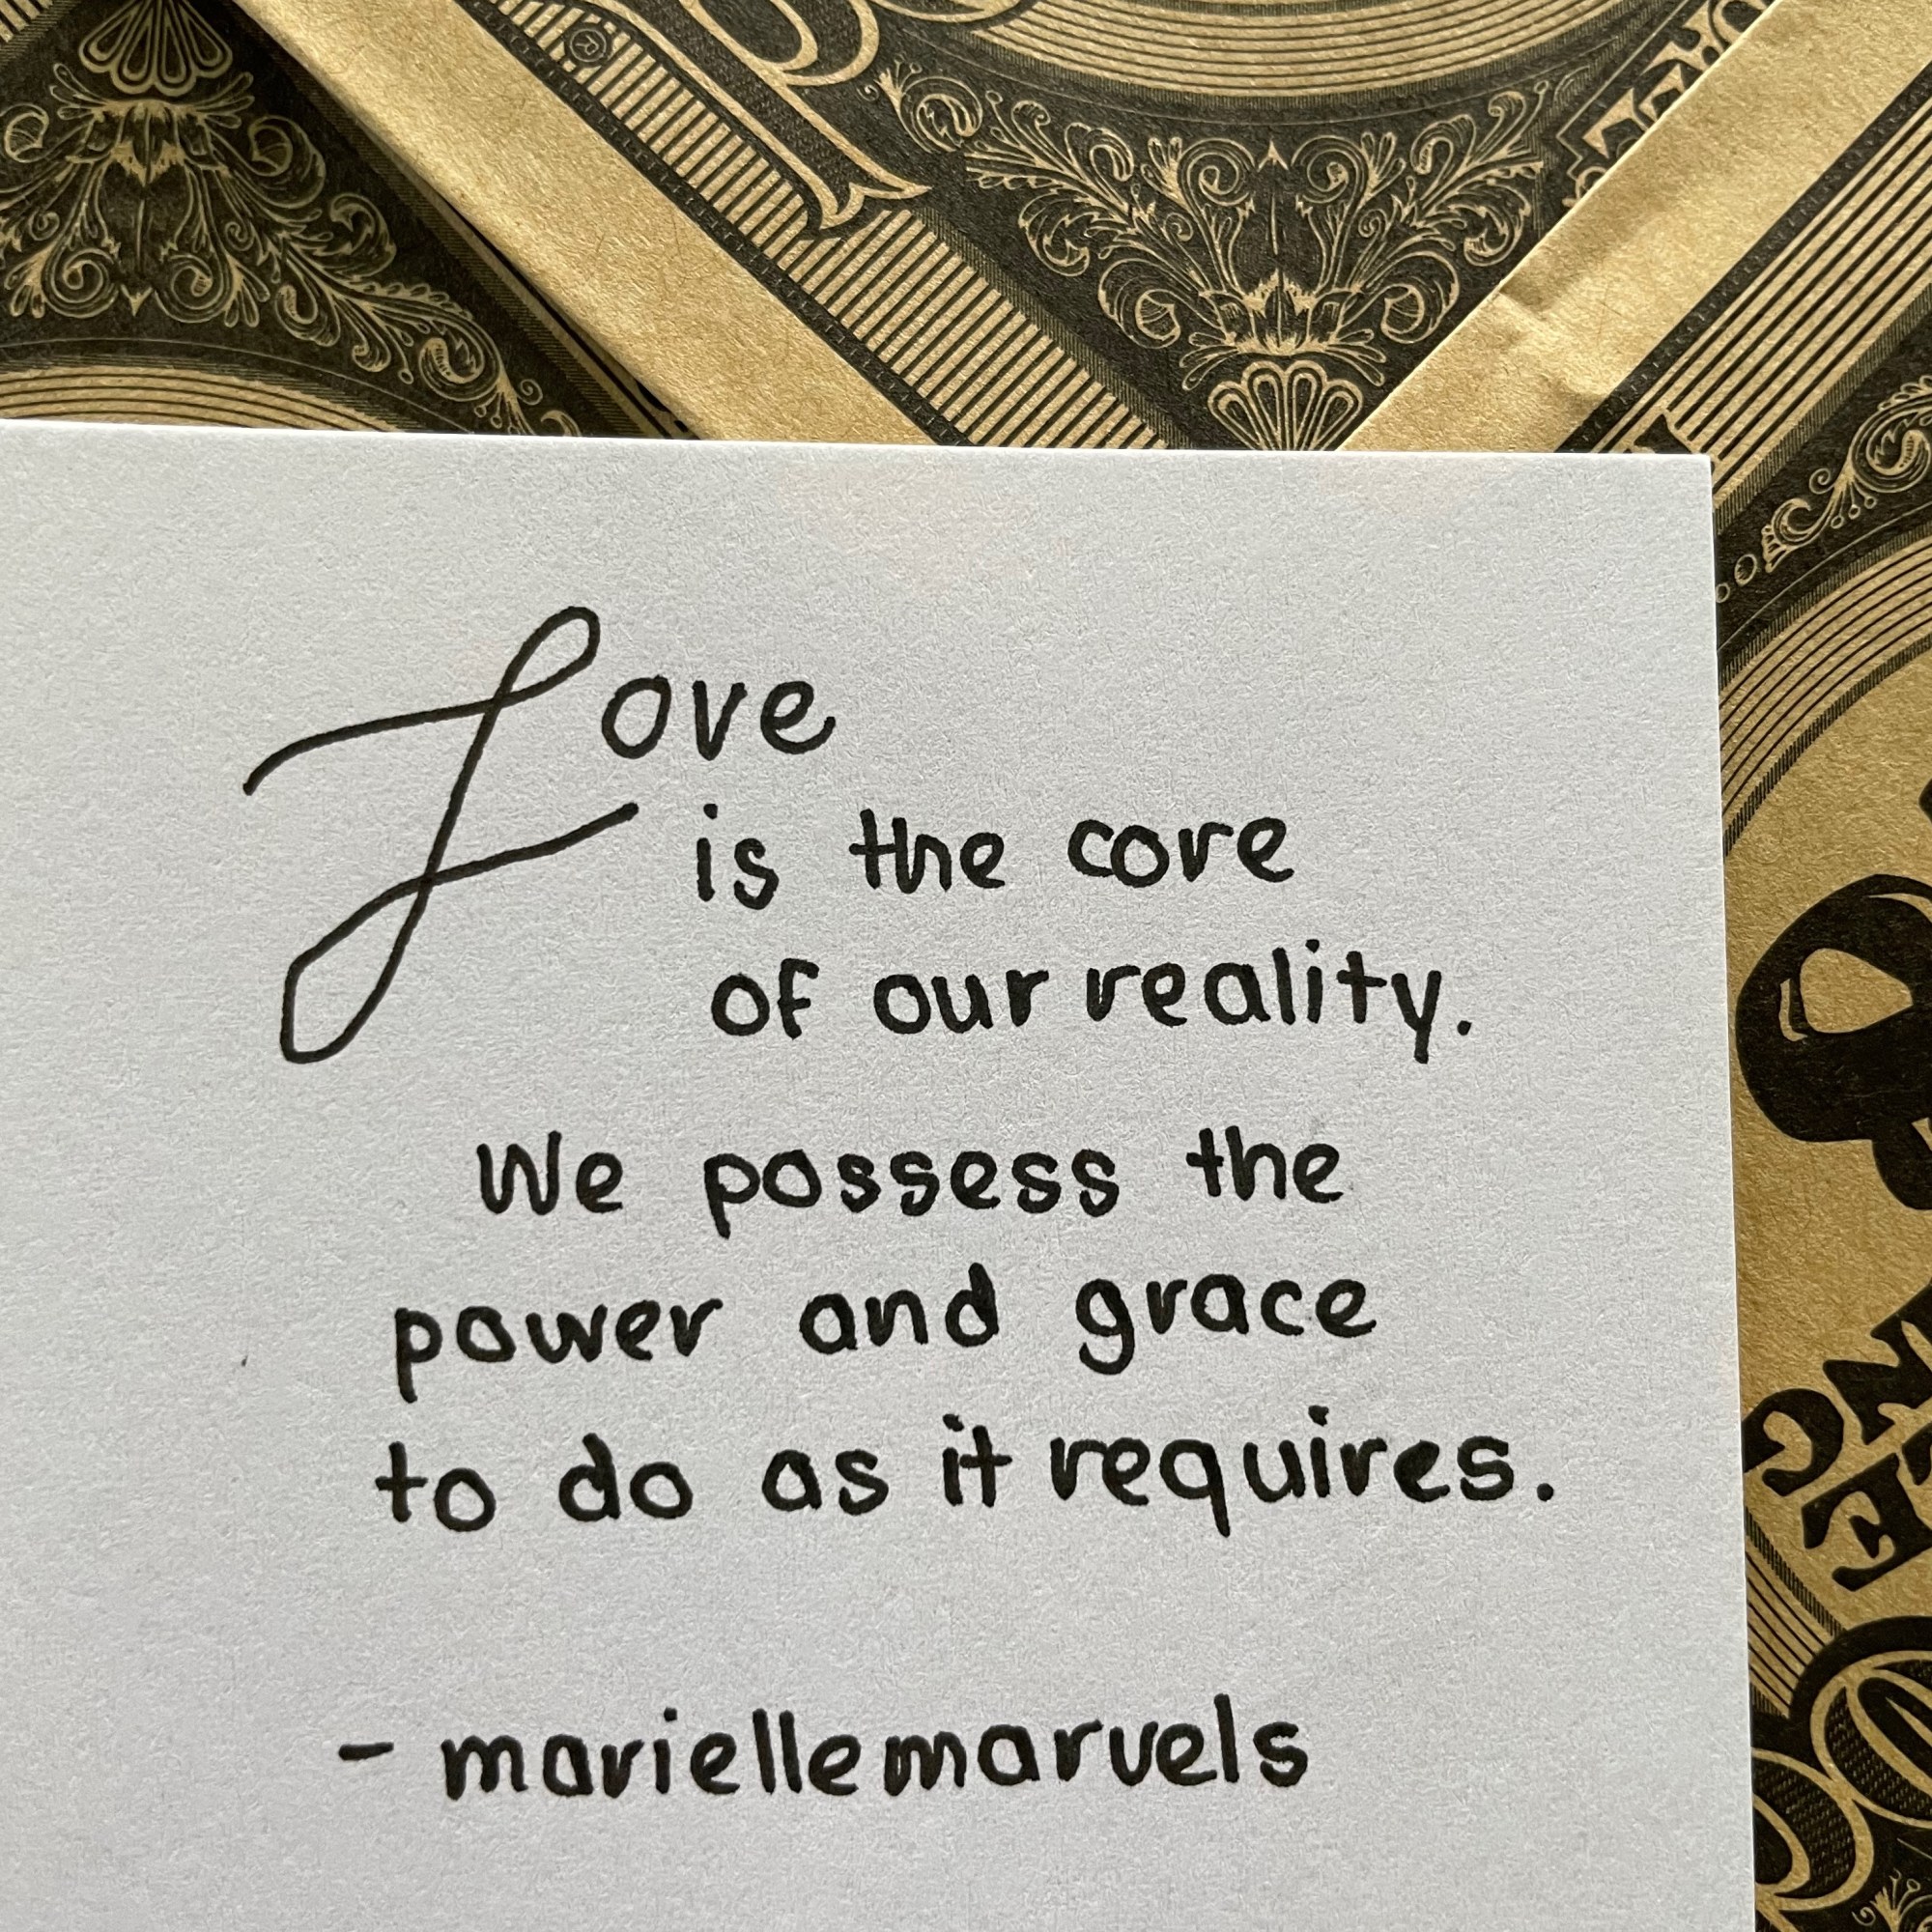 Love
is the core
of our reality.
We possess the
power and grace
to do as it requires.
- mariellemarvels